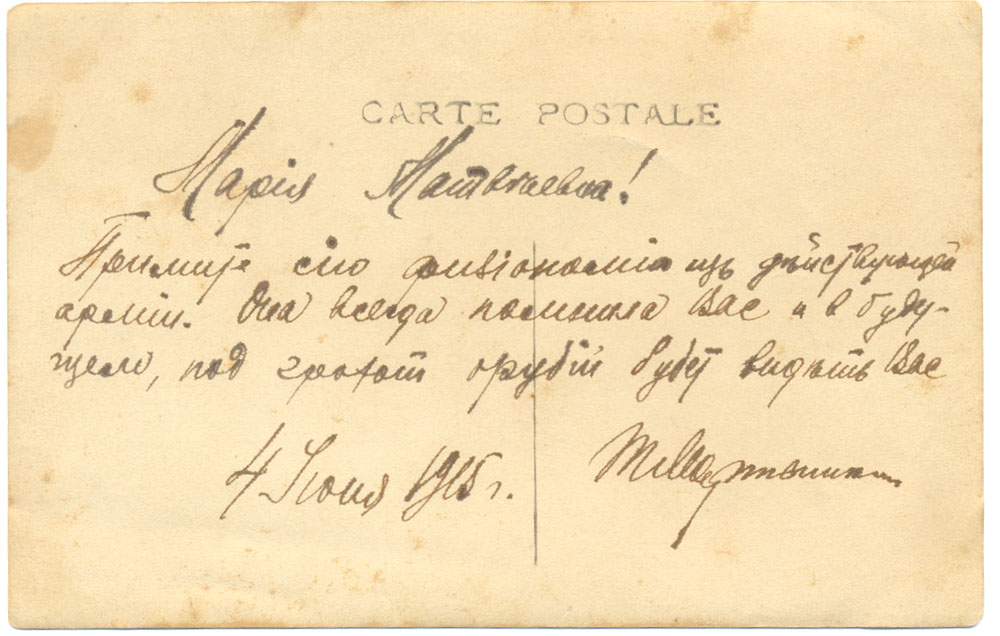 CARTE POSTALE
Марія Матвѣевна!
Примите сію физіономію изъ дѣйствующей
арміи. Она всегда помнила Вас и в буду-
щем, под грохот орудій будет видѣть Вас
4 Іюня 1915 г.